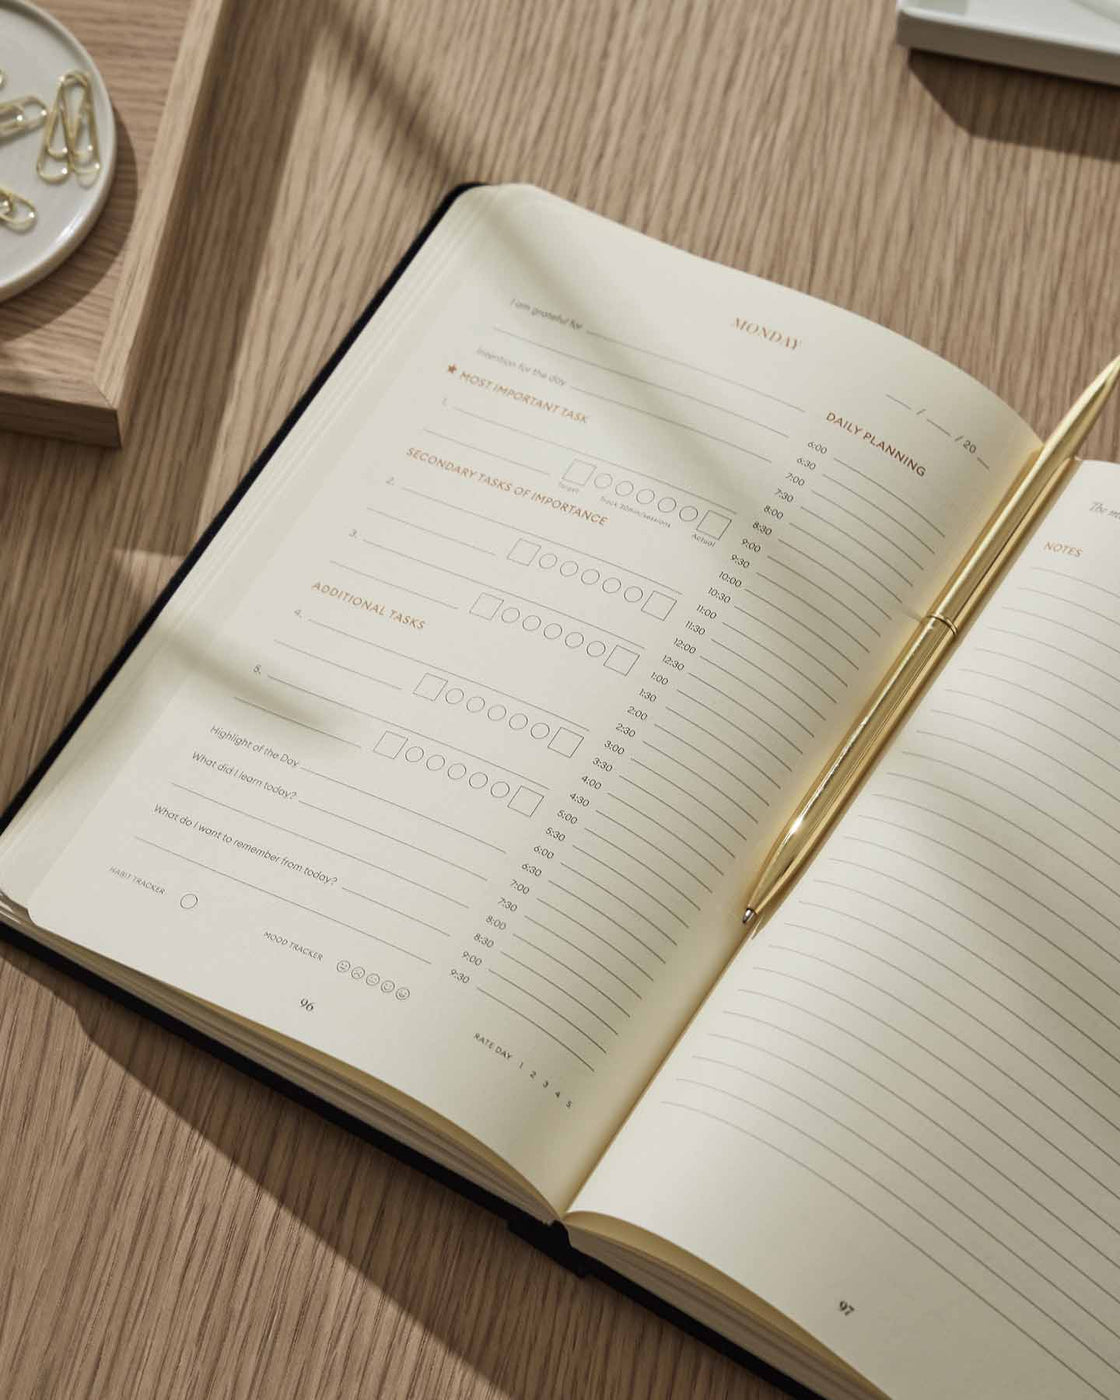 MONDAY
I am grateful for
Intention for the day
★ MOST IMPORTANT TASK
1.
Target
Track 30min/sessions
Actual
SECONDARY TASKS OF IMPORTANCE
2.
3.
ADDITIONAL TASKS
4.
5.
Highlight of the Day
What did I learn today?
What do I want to remember from today?
HABIT TRACKER
MOOD TRACKER
96
/ / 20
DAILY PLANNING
6:00
6:30
7:00
7:30
8:00
8:30
9:00
9:30
10:00
10:30
11:00
11:30
12:00
12:30
1:00
1:30
2:00
2:30
3:00
3:30
4:00
4:30
5:00
5:30
6:00
6:30
7:00
7:30
8:00
8:30
9:00
9:30
RATE DAY 1 2 3 4 5
The
NOTES
97